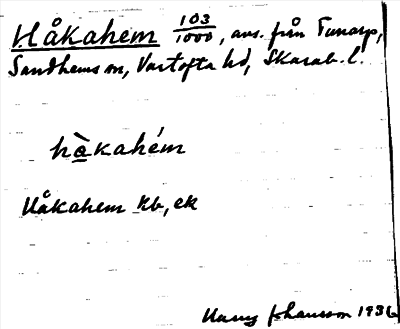 Håkahem 103/1000, avs. från Tunarp,
Sandhems sn, Vartofta hd, Skarab. l.
hå̀kahém
Håkahem kb, ek
Harry Johansson 1936